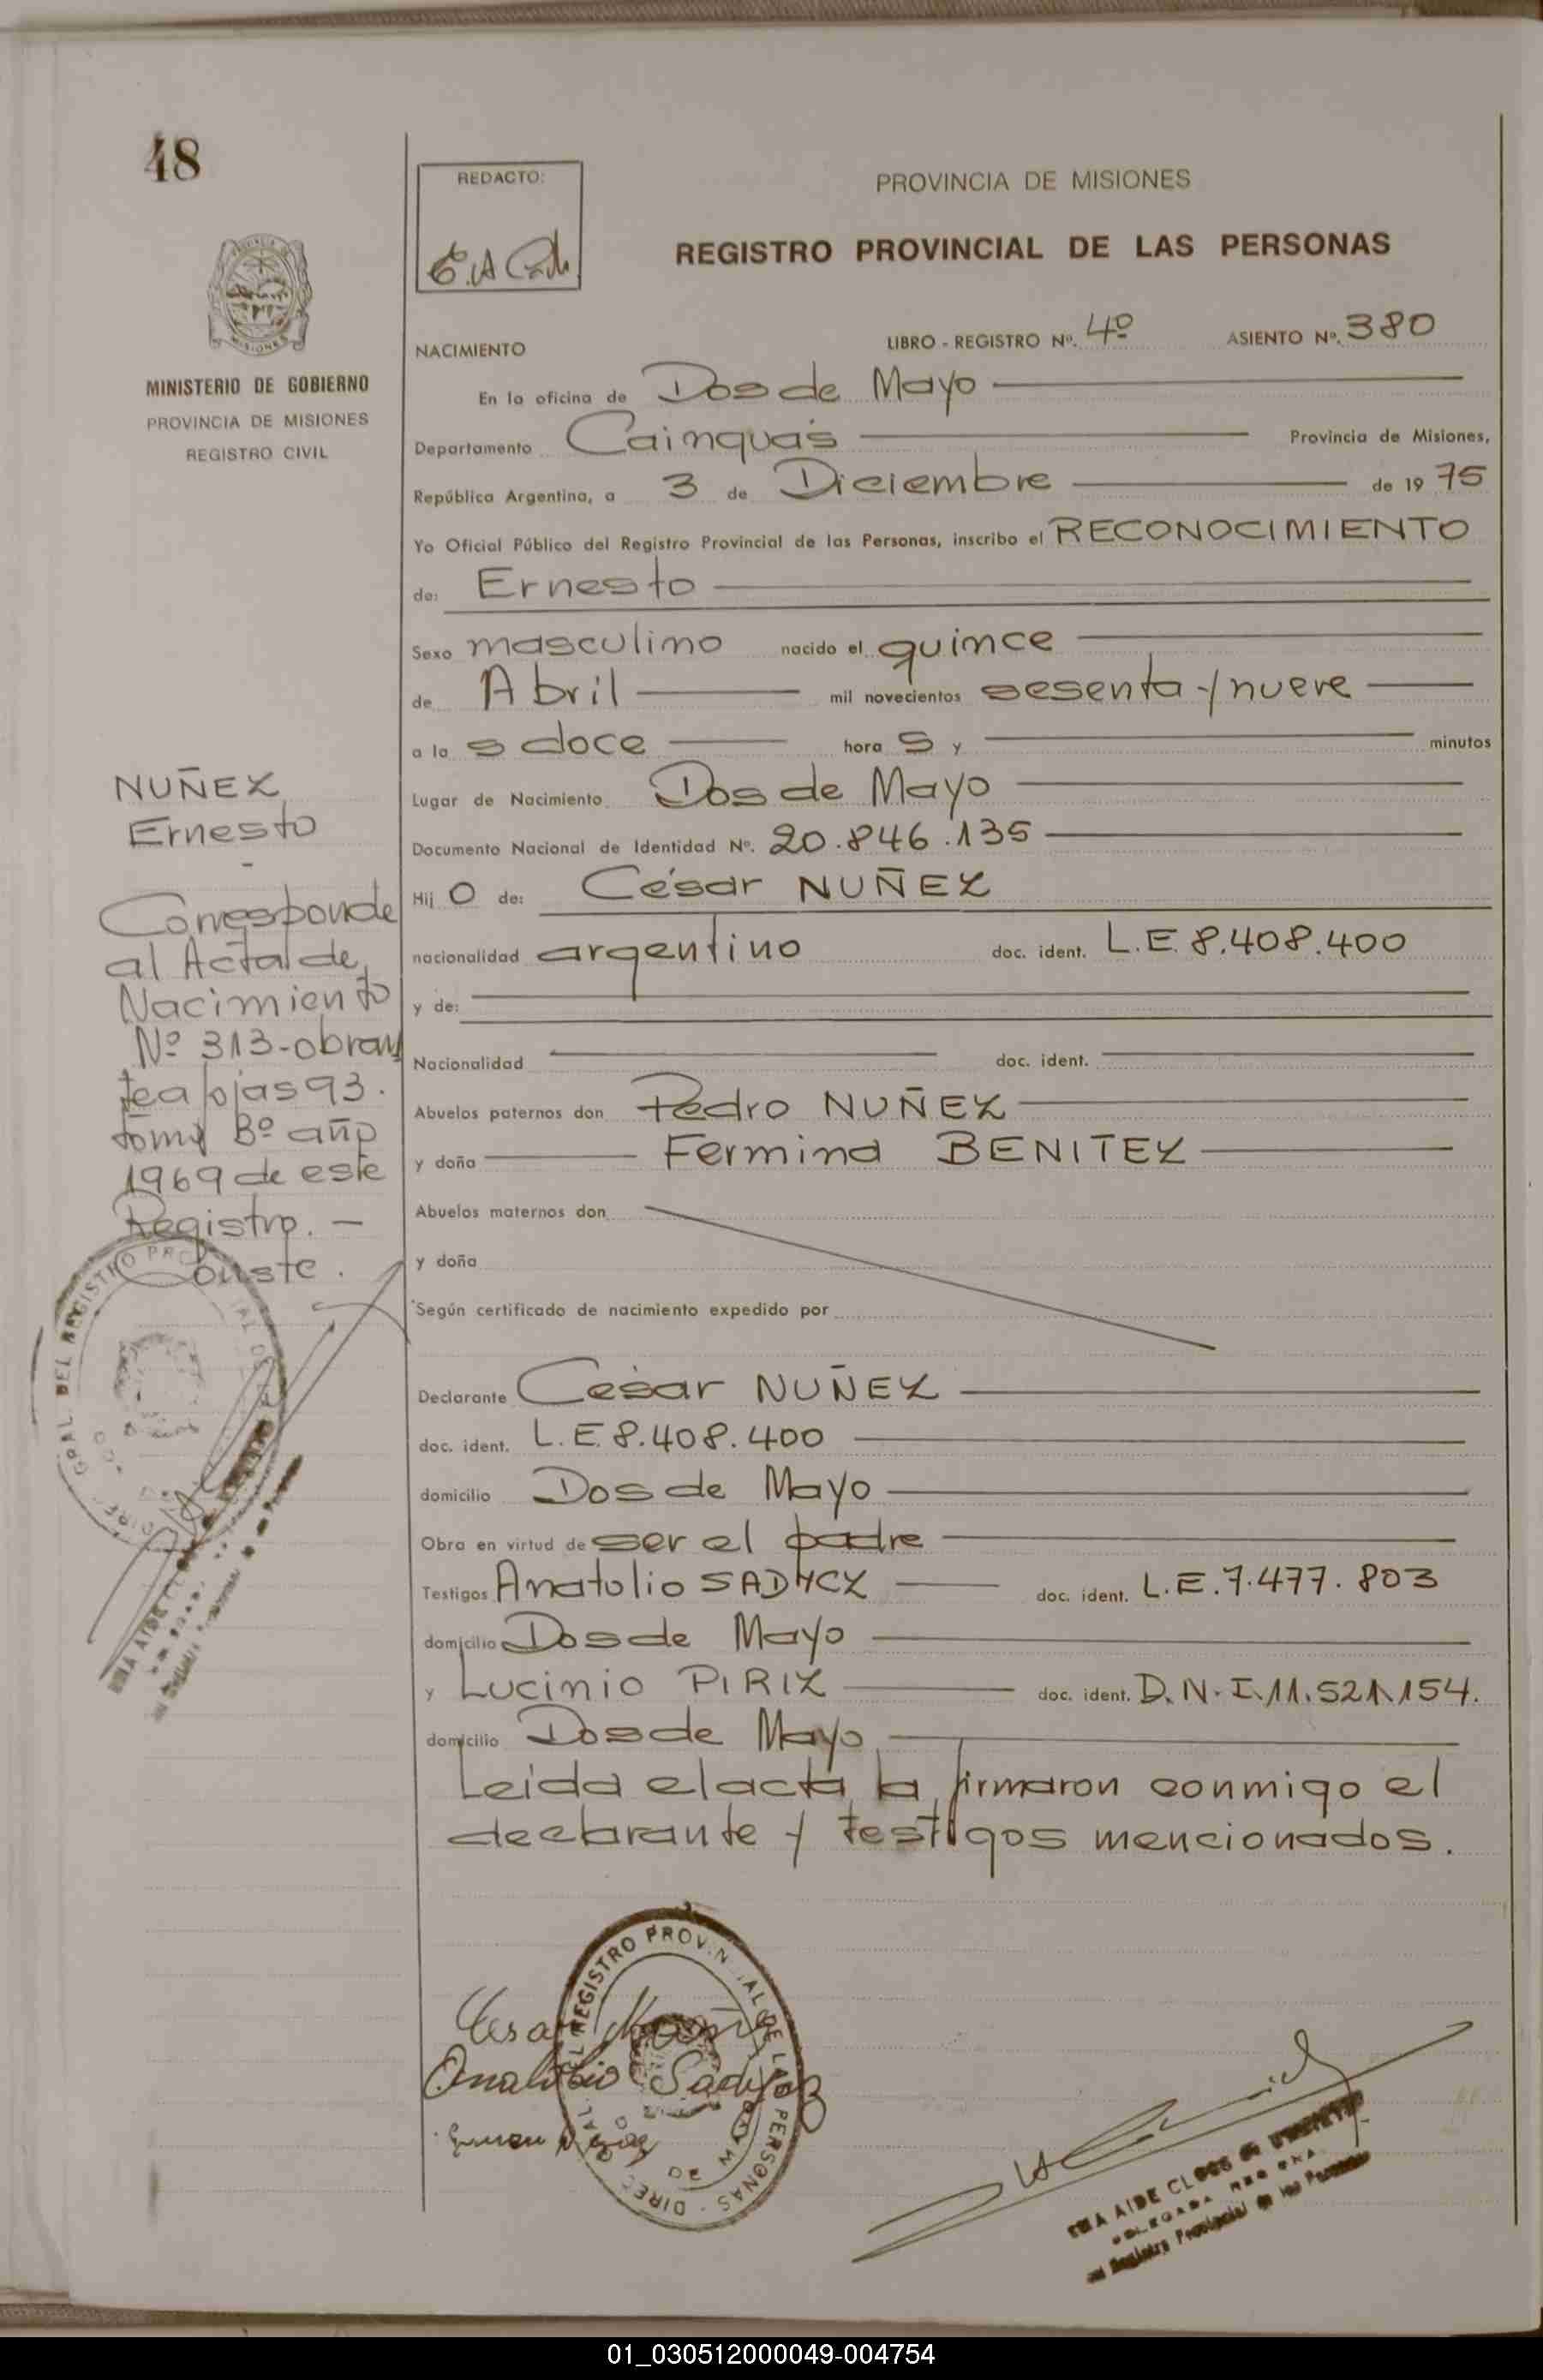 48
REDACTO:
PROVINCIA DE MISIONES
REGISTRO PROVINCIAL DE LAS PERSONAS
MISIONES
MINISTERIO DE GOBIERNO
PROVINCIA DE MISIONES
REGISTRO CIVIL
NACIMIENTO LIBRO - REGISTRO Nº. 4º ASIENTO Nº. 380
En la oficina de Dos de Mayo
Departamento Cainguás Provincia de Misiones,
República Argentina, a 3 de Diciembre de 19 75
Yo Oficial Público del Registro Provincial de las Personas, inscribo el RECONOCIMIENTO
de: Ernesto
Sexo masculino nacido el quince
de Abril mil novecientos sesenta y nueve
a la s doce hora s y minutos
Lugar de Nacimiento Dos de Mayo
Documento Nacional de Identidad Nº. 20.846.135
Hij o de: César NUÑEZ
nacionalidad argentino doc. ident. L.E. 8.408.400
y de:
Nacionalidad doc. ident.
Abuelos paternos don Pedro NUÑEZ
y doña Fermina BENITEZ
Abuelos maternos don
y doña
Según certificado de nacimiento expedido por
Declarante César NUÑEZ
doc. ident. L.E. 8.408.400
domicilio Dos de Mayo
Obra en virtud de ser el padre
Testigos Anatolio SADYCZ doc. ident. L.E. 7.477.803
domicilio Dos de Mayo
y Lucinio PIRIZ doc. ident. D.N.I. 11.521.154.
domicilio Dos de Mayo
Leida el acta la firmaron conmigo el
declarante y testigos mencionados.
NUÑEZ
Ernesto
-
Corresponde
al Acta de
Nacimiento
Nº 313-obran
te a fojas 93.
tomo 3º año
1969 de este
Registro. -
Conste.
DEL REGISTRO
REGISTRO PROVINCIAL DE LAS PERSONAS
Anatolio Sadycz
AIDE
Registro Provincial de las Personas
01_030512000049-004754